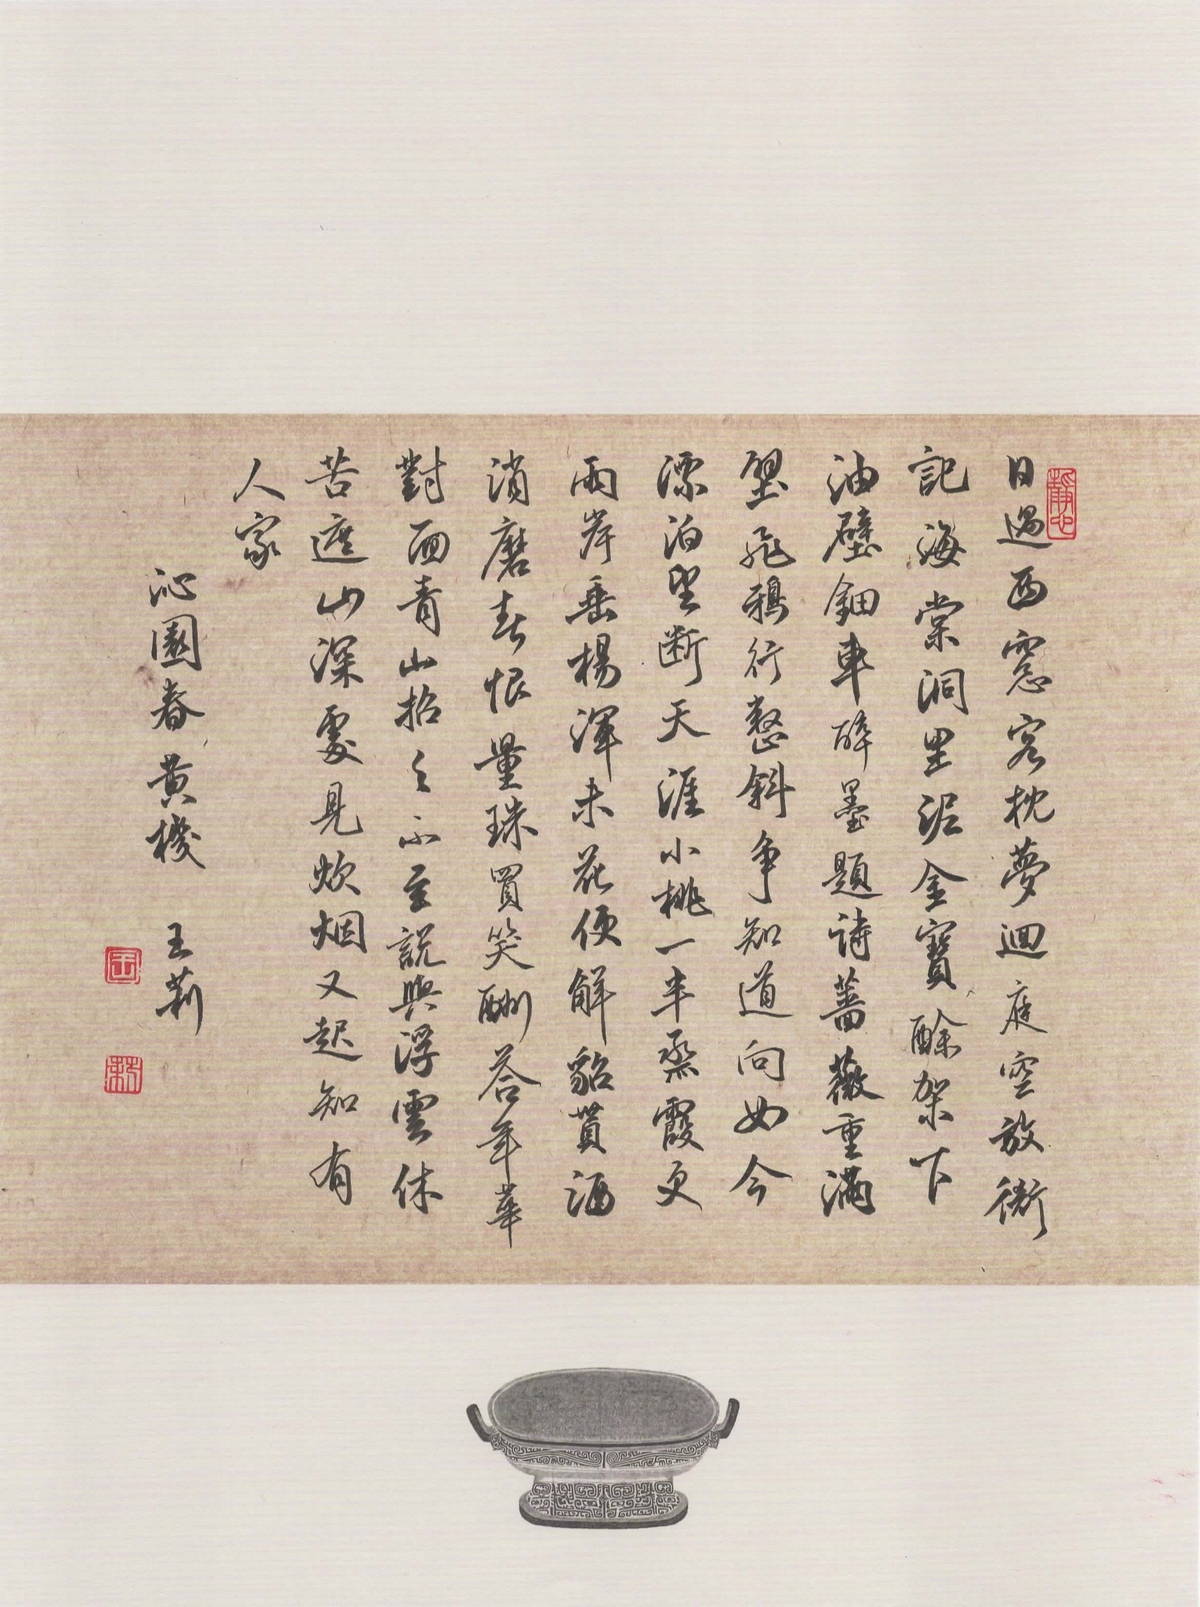 日過西窗客枕夢迴庭空放衙
記海棠洞里泥金寶酴架下
油壁鈿車醉墨題詩薔薇重滿
壁飛鴉行整斜争知道向如今
漂泊望断天涯小桃一半蒸霞更
兩岸垂楊渾未花便解貂貰酒
消磨春恨量珠買笑酬荅年華
對面青山招之不至說與浮雲休
苦遮山深處見炊烟又起知有
人家
沁園春黄機 王莉